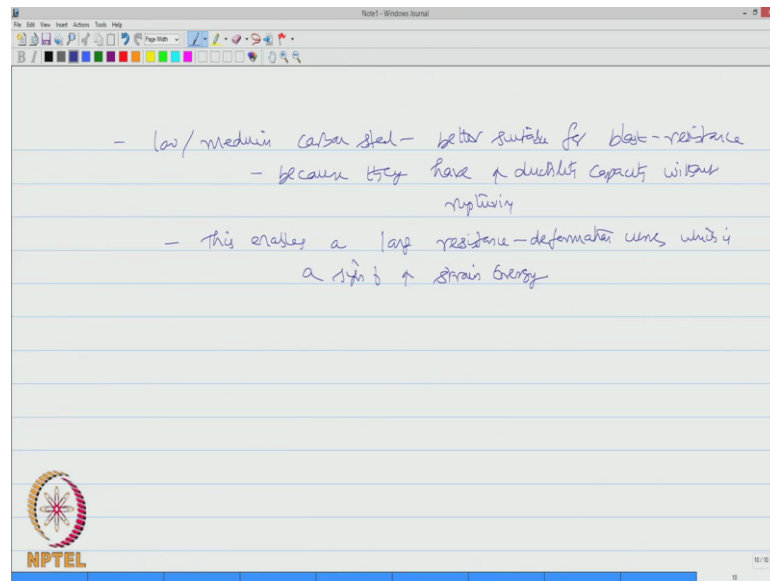 Note1 - Windows Journal
File Edit View Insert Actions Tools Help
Page Width
B I
- low/medium carbon steel - better suitable for blast-resistance
- because they have ↑ ductility capacity without
rupturing
- This enables a large resistance-deformation curves which is
a sign of ↑ strain Energy
NPTEL
10 / 10
10